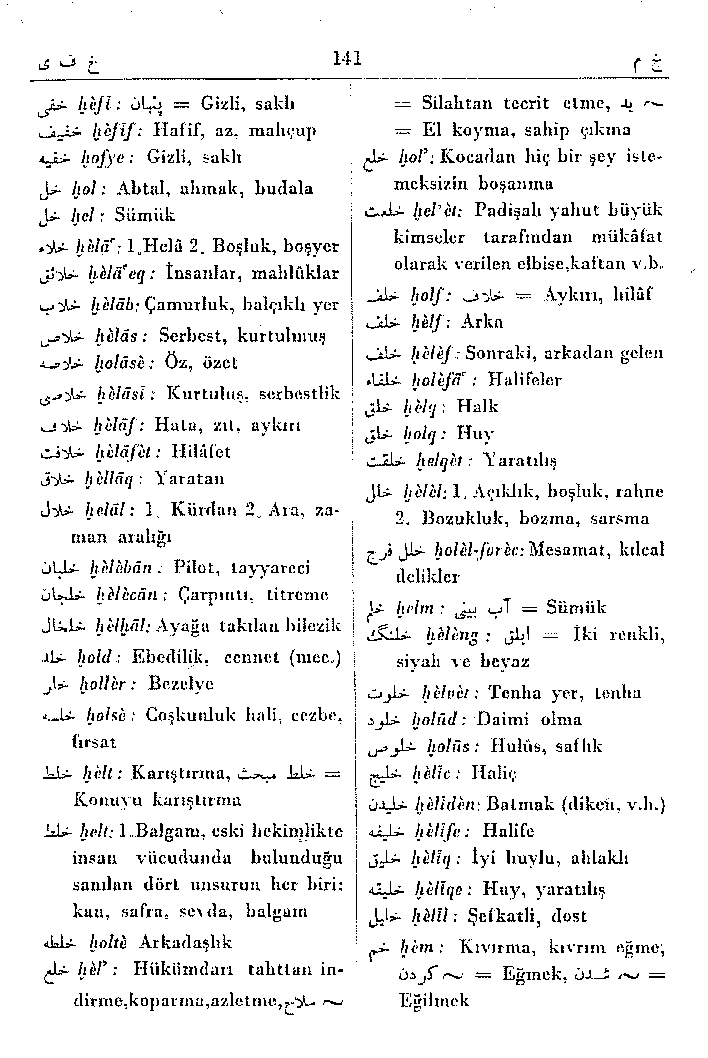 خ ف ى 141 خ م
خفى ḫèfî : پنهان = Gizli, saklı
خفيف ḫèfîf: Hafif, az, mahçup
خفيه ḫofye : Gizli, saklı
خل ḫol : Abtal, ahmak, budala
خل ḫel : Sümük
خلاء ḫèlāʿ: 1.Helâ 2. Boşluk, boşyer
خلائق ḫèlāʿeq : İnsanlar, mahlûklar
خلاب ḫèlāb: Çamurluk, balçıklı yer
خلاص ḫèlās : Serbest, kurtulmuş
خلاصه ḫolāsè : Öz, özet
خلاصى ḫèlāsî : Kurtuluş, serbestlik
خلاف ḫèlāf : Hata, zıt, aykırı
خلافت ḫèlāfèt : Hilâfet
خلاق ḫèllāq : Yaratan
خلال ḫelāl : 1. Kürdan 2. Ara, za-
man aralığı
خلبان ḫèlèbān : Pilot, tayyareci
خلجان ḫèlècān : Çarpıntı, titreme
خلخال ḫèlḫāl: Ayağa takılan bilezik
خلد ḫold : Ebedîlik, cennet (mec.)
خلر ḫollèr : Bezelye
خلسه ḫolsè : Coşkunluk hali, cezbe,
fırsat
خلط ḫèlt : Karıştırma, خلط مبحث =
Konuyu karıştırma
خلط ḫelt: 1.Balgam, eski hekimlikte
insan vücudunda bulunduğu
sanılan dört unsurun her biri:
kan, safra, sevda, balgam
خلطه ḫoltè Arkadaşlık
خلع ḫèlʾ : Hükümdarı tahttan in-
dirme,koparma,azletme, ~ سلاح
= Silahtan tecrit etme, ~ يد
= El koyma, sahip çıkma
خلع ḫolʾ: Kocadan hiç bir şey iste-
meksizin boşanma
خلعت ḫelʾèt: Padişah yahut büyük
kimseler tarafından mükâfat
olarak verilen elbise,kaftan v.b.
خلف ḫolf : خلاف = Aykırı, hilâf
خلف ḫèlf : Arka
خلف ḫèlèf : Sonraki, arkadan gelen
خلفاء ḫolèfāʿ : Halifeler
خلق ḫèlq : Halk
خلق ḫolq : Huy
خلقت ḫelqèt : Yaratılış
خلل ḫèlèl: 1. Açıklık, boşluk, rahne
2. Bozukluk, bozma, sarsma
خلل فرج ḫolèl-forèc: Mesamat, kılcal
delikler
خلم ḫelm : آب بينى = Sümük
خلنگ ḫèlèng : ابلق = İki renkli,
siyah ve beyaz
خلوت ḫèlvèt : Tenha yer, tenha
خلود ḫolūd : Daimi olma
خلوص ḫolūs : Hulûs, saflık
خليج ḫèlîc : Haliç
خليدن ḫèlîdèn: Batmak (diken, v.b.)
خليفه ḫèlîfe : Halife
خليق ḫèlîq : İyi huylu, ahlaklı
خليقه ḫèlîqe : Huy, yaratılış
خليل ḫèlîl : Şefkatli, dost
خم ḫèm : Kıvırma, kıvrım eğme,
~ كردن = Eğmek, ~ شدن =
Eğilmek